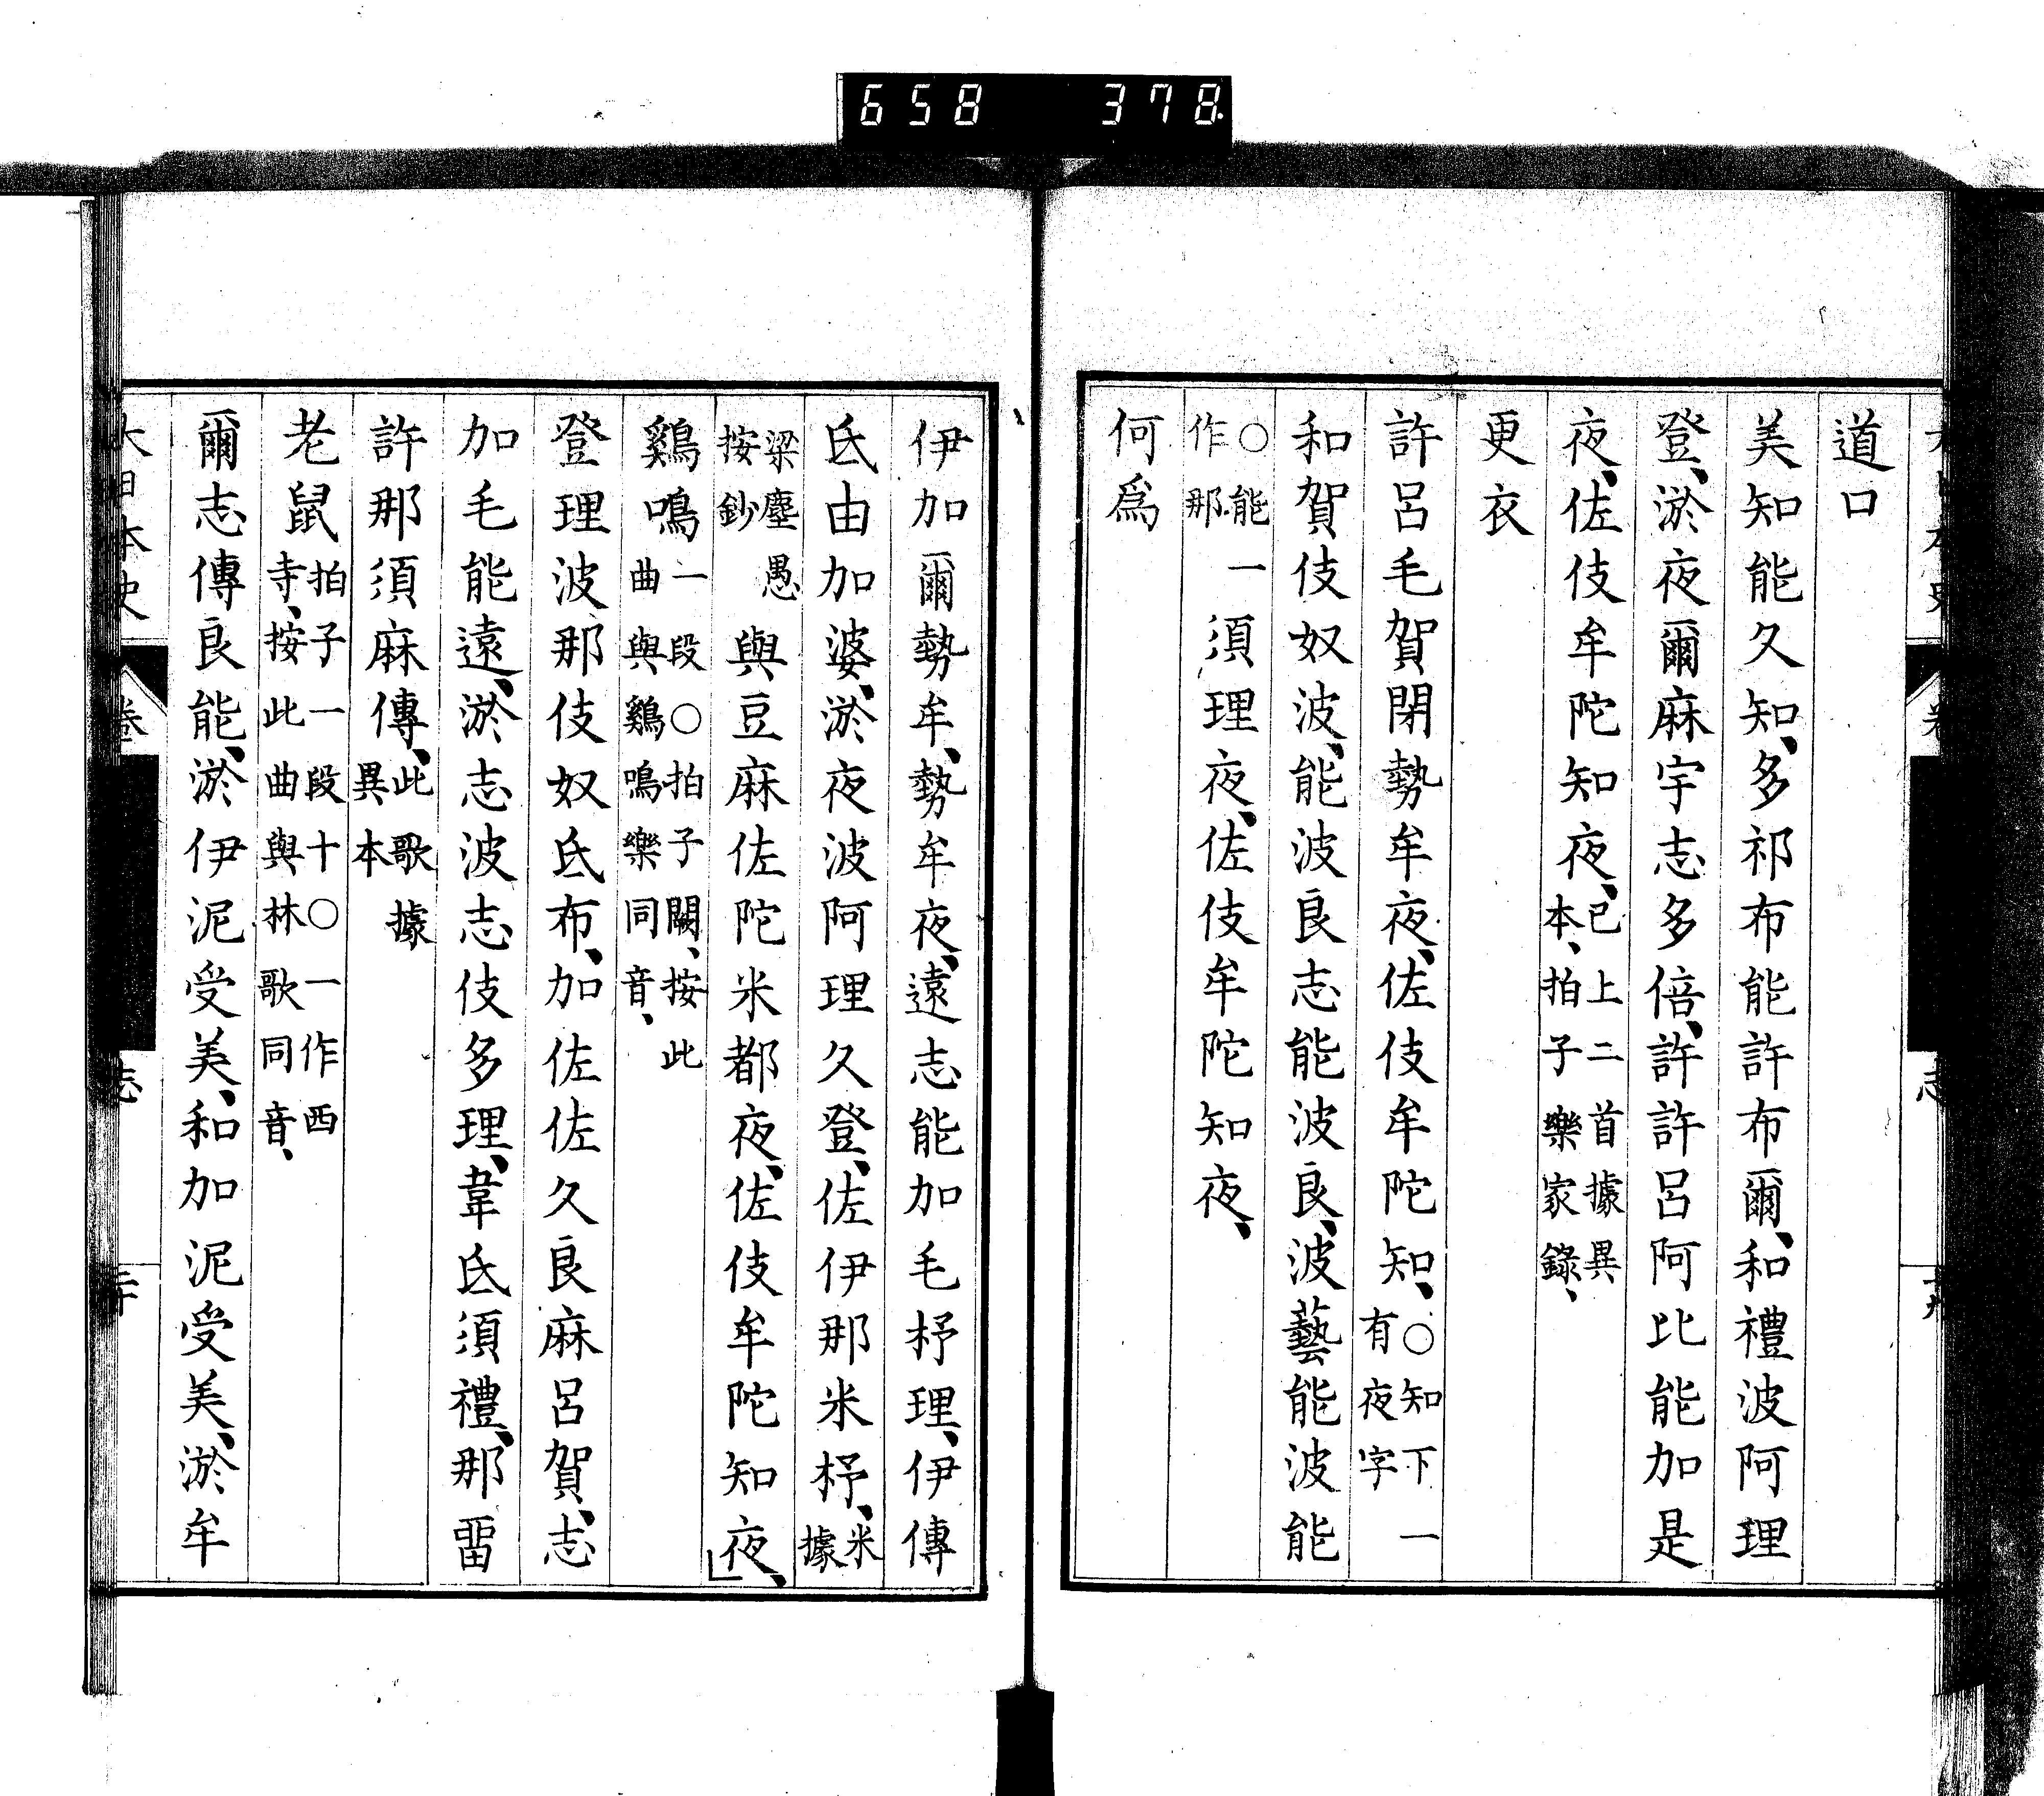 658 378
道口
美知能久知、多祁布能許布爾、和禮波阿理
登、淤夜爾麻宇志多倍、許許呂阿比能加是
夜、佐伎牟陀知夜、已上二首據異本、拍子樂家錄、
更衣
許呂毛賀閉勢牟夜、佐伎牟陀知、○知下一有夜字
和賀伎奴波、能波良志能波良、波藝能波能
○能一作那須理夜、佐伎牟陀知夜、
何爲
伊加爾勢牟、勢牟夜、遠志能加毛杼理、伊傳
氐由加婆、淤夜波阿理久登、佐伊那米杼、米據
梁塵愚按鈔與豆麻佐陀米都夜、佐伎牟陀知夜、」
鷄鳴一段○拍子闕、按此曲與鷄鳴樂同音、
登理波那伎奴氐布、加佐佐久良麻呂賀、志
加毛能遠、淤志波志伎多理、韋氐須禮、那留
許那須麻傳、此歌據異本
老鼠拍子一段十○一作西寺、按此曲與林歌同音、
爾志傳良能、淤伊泥受美、和加泥受美、淤牟
大日本史
卷
志
二十